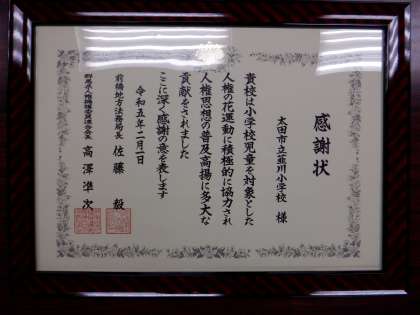 感謝状
太田市立韮川小学校 様
貴校は小学校児童を対象とした
人権の花運動に積極的に協力され
人権思想の普及高揚に多大な
貢献をされました
ここに深く感謝の意を表します
令和五年二月一日
前橋地方法務局長 佐藤 毅
群馬県人権擁護委員連合会長 高澤準次